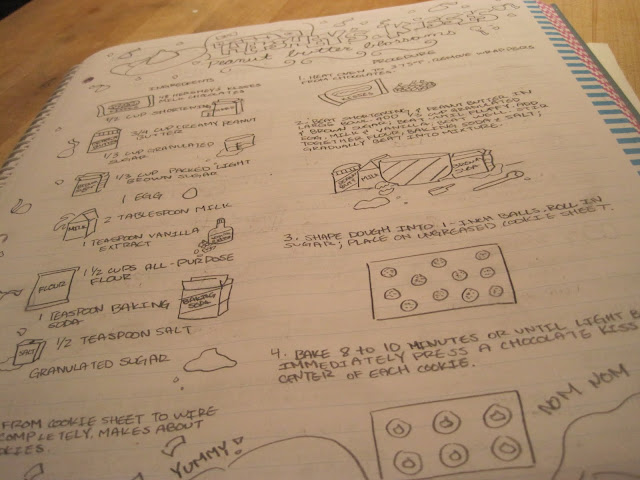 Peanut butter blossoms
INGREDIENTS
48 HERSHEY'S KISSES
MILK CHOCOLATES
1/2 CUP SHORTENING
3/4 CUP CREAMY PEANUT
BUTTER
1/3 CUP GRANULATED
SUGAR
1/3 CUP PACKED LIGHT
BROWN SUGAR
1 EGG
2 TABLESPOON MILK
MILK
1 TEASPOON VANILLA
EXTRACT
1 1/2 CUPS ALL-PURPOSE
FLOUR
FLOUR
1 TEASPOON BAKING
SODA
BAKING
SODA
1/2 TEASPOON SALT
SALT
GRANULATED SUGAR
PROCEDURE
1. HEAT OVEN TO 375°F. REMOVE WRAPPERS
FROM CHOCOLATES.
KISSES
2. BEAT SHORTENING & PEANUT BUTTER IN
LARGE BOWL. ADD 1/3 CUP GRANULATED
& BROWN SUGAR; BEAT UNTIL FLUFFY. ADD
EGG, MILK & VANILLA; BEAT WELL. STIR
TOGETHER FLOUR, BAKING SODA & SALT;
GRADUALLY BEAT INTO MIXTURE.
MILK
3. SHAPE DOUGH INTO 1-INCH BALLS. ROLL IN
SUGAR; PLACE ON UNGREASED COOKIE SHEET.
4. BAKE 8 to 10 MINUTES OR UNTIL LIGHT B
IMMEDIATELY PRESS A CHOCOLATE KISS
CENTER OF EACH COOKIE.
FROM COOKIE SHEET TO WIRE
COMPLETELY. MAKES ABOUT
OKIES.
YUMMY!
NOM NOM